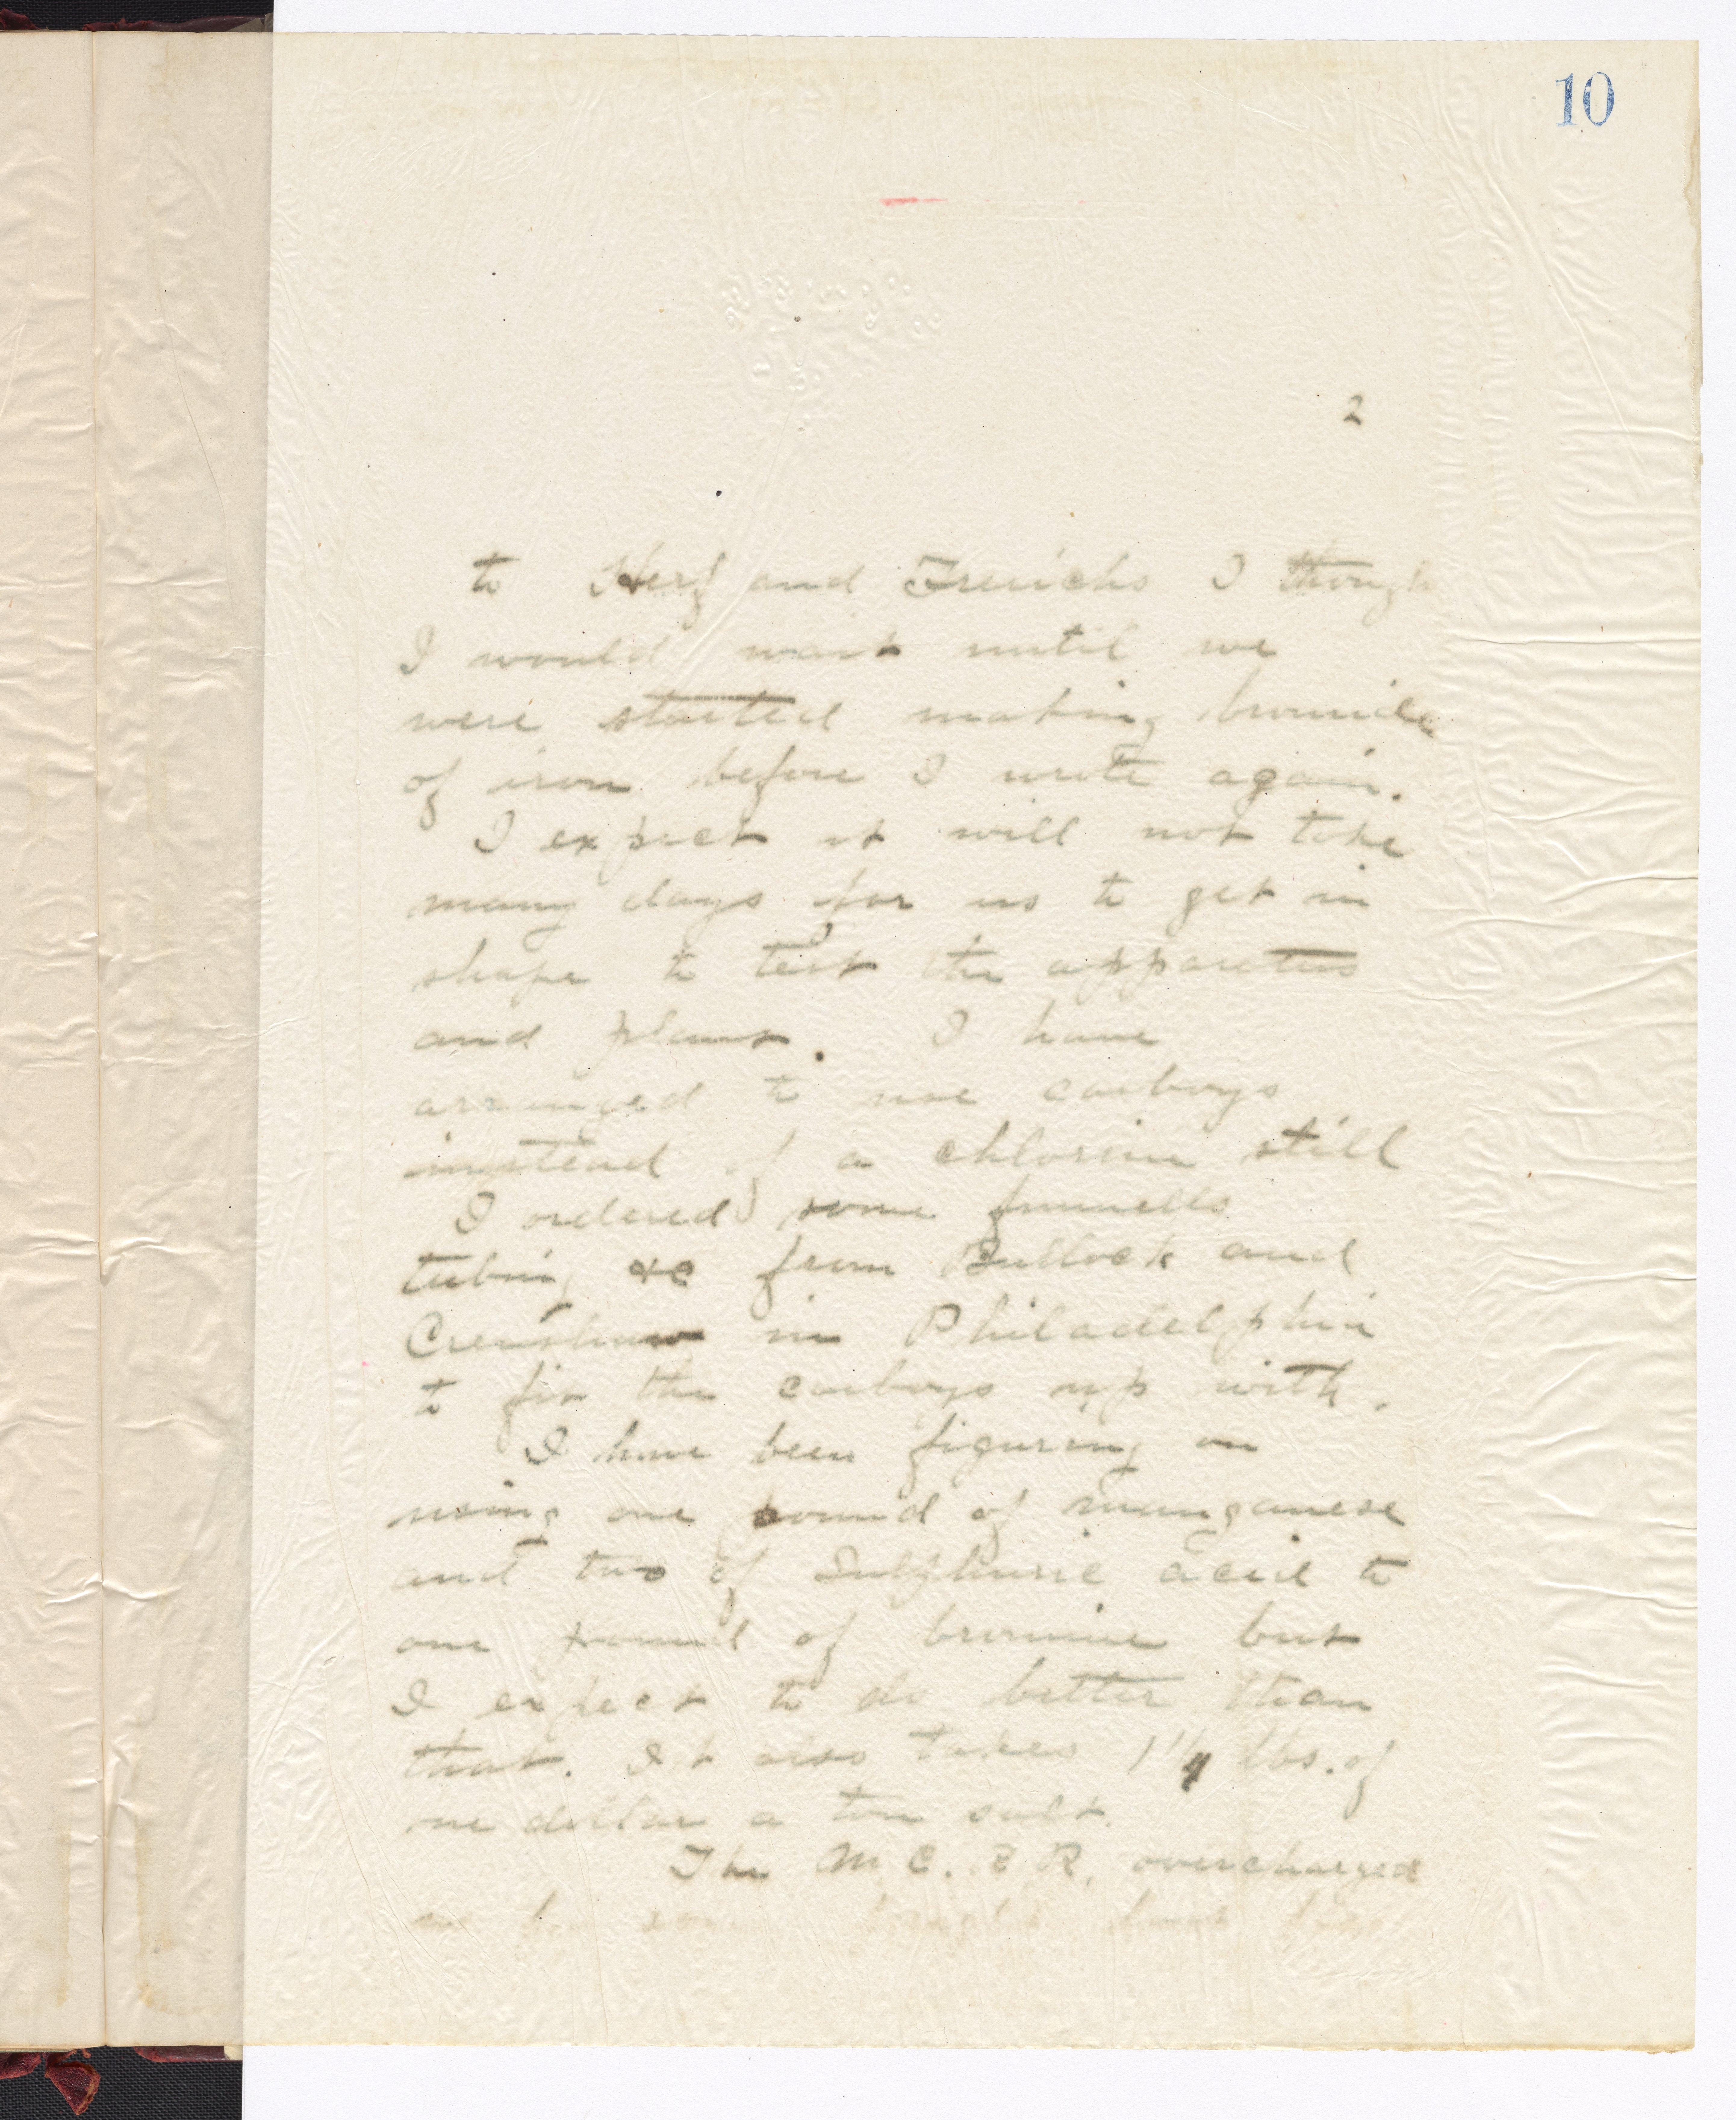 10
2
to Herf and Frerichs I though
I would wait until we
were started making bromide
of iron before I write again.
I expect it will not take
many days for us to get in
shape to test the apparatus
and plant. I have
arranged to use carboys
instead of a chlorine still
I ordered some funnells
tubing &c from Bullock and
Crenshaw in Philadelphia
to fix the carboys up with.
I have been figuring on
using one pound of manganese
and two of Sulphuric acid to
one pound of bromine but
I expect to do better than
that. It also takes lbs. of
one dollar a ton salt.
The M C. R R. overcharged